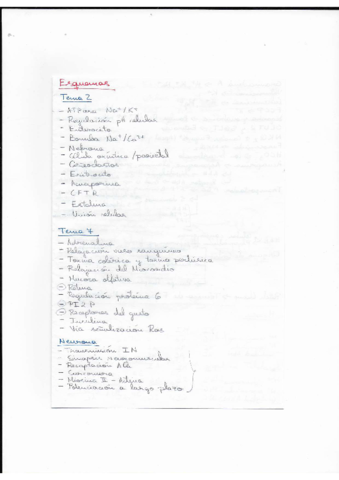 Esquemas
Tema 2
- ATPasa Na⁺/K⁺
- Regulación pH celular
- Enterocito
- Bomba Na⁺/Ca²⁺
- Nefrona
- Célula oxíntica/parietal
- Osteoclastos
- Eritrocito
- Acuaporina
- C.F.T.R
- Unión celular
Tema 7
- Adrenalina
- Relajación vaso sanguíneo
- Toxina colérica y toxina pertúsica
- Relajación del Miocardio
- Mucosa olfativa
- Retina
- Regulación proteína G
- PI2P
- Receptores del gusto
- Insulina
- Vía señalización Ras
Neurona
- Transmisión IN
- Sinapsis neuromuscular
- Receptación ACh
- Sarcómero
- Miosina II - Actina
- Potenciación a largo plazo